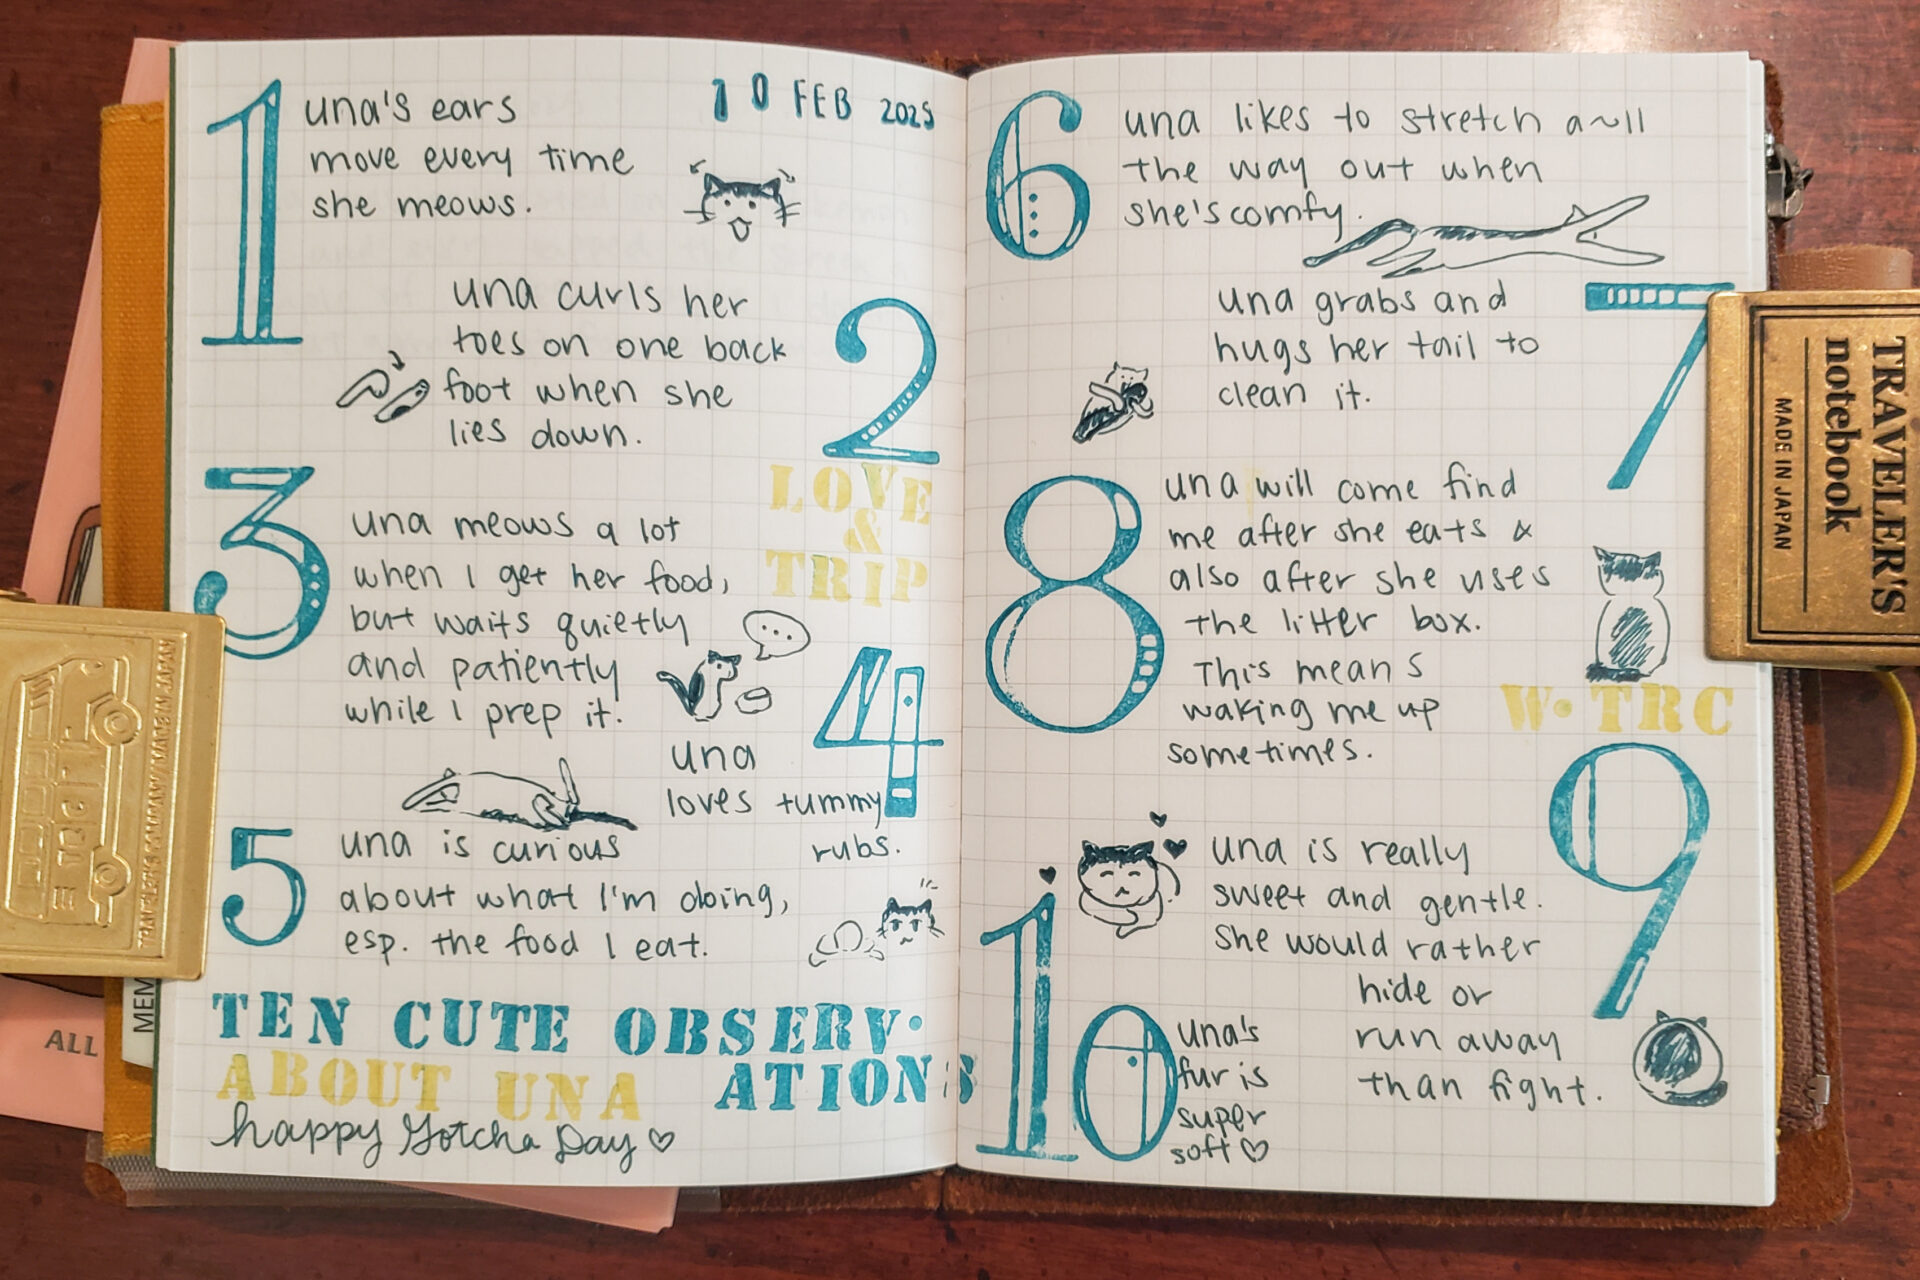 10 FEB 2025
1
una's ears
move every time
she meows.
2
una curls her
toes on one back
foot when she
lies down.
LOVE
&
TRIP
3
una meows a lot
when I get her food,
but waits quietly
and patiently
while I prep it.
...
4
una
loves tummy
rubs.
5
una is curious
about what I'm doing,
esp. the food I eat.
TEN CUTE OBSERV·
ABOUT UNA ATIONS
happy Gotcha Day ♡
6
una likes to stretch a~ll
the way out when
she's comfy.
7
una grabs and
hugs her tail to
clean it.
8
una will come find
me after she eats &
also after she uses
the litter box.
This means
waking me up
sometimes.
W·TRC
9
una is really
sweet and gentle.
She would rather
hide or
run away
than fight.
10
una's
fur is
super
soft ♡
TRAVELER'S
notebook
MADE IN JAPAN
MEM
ALL